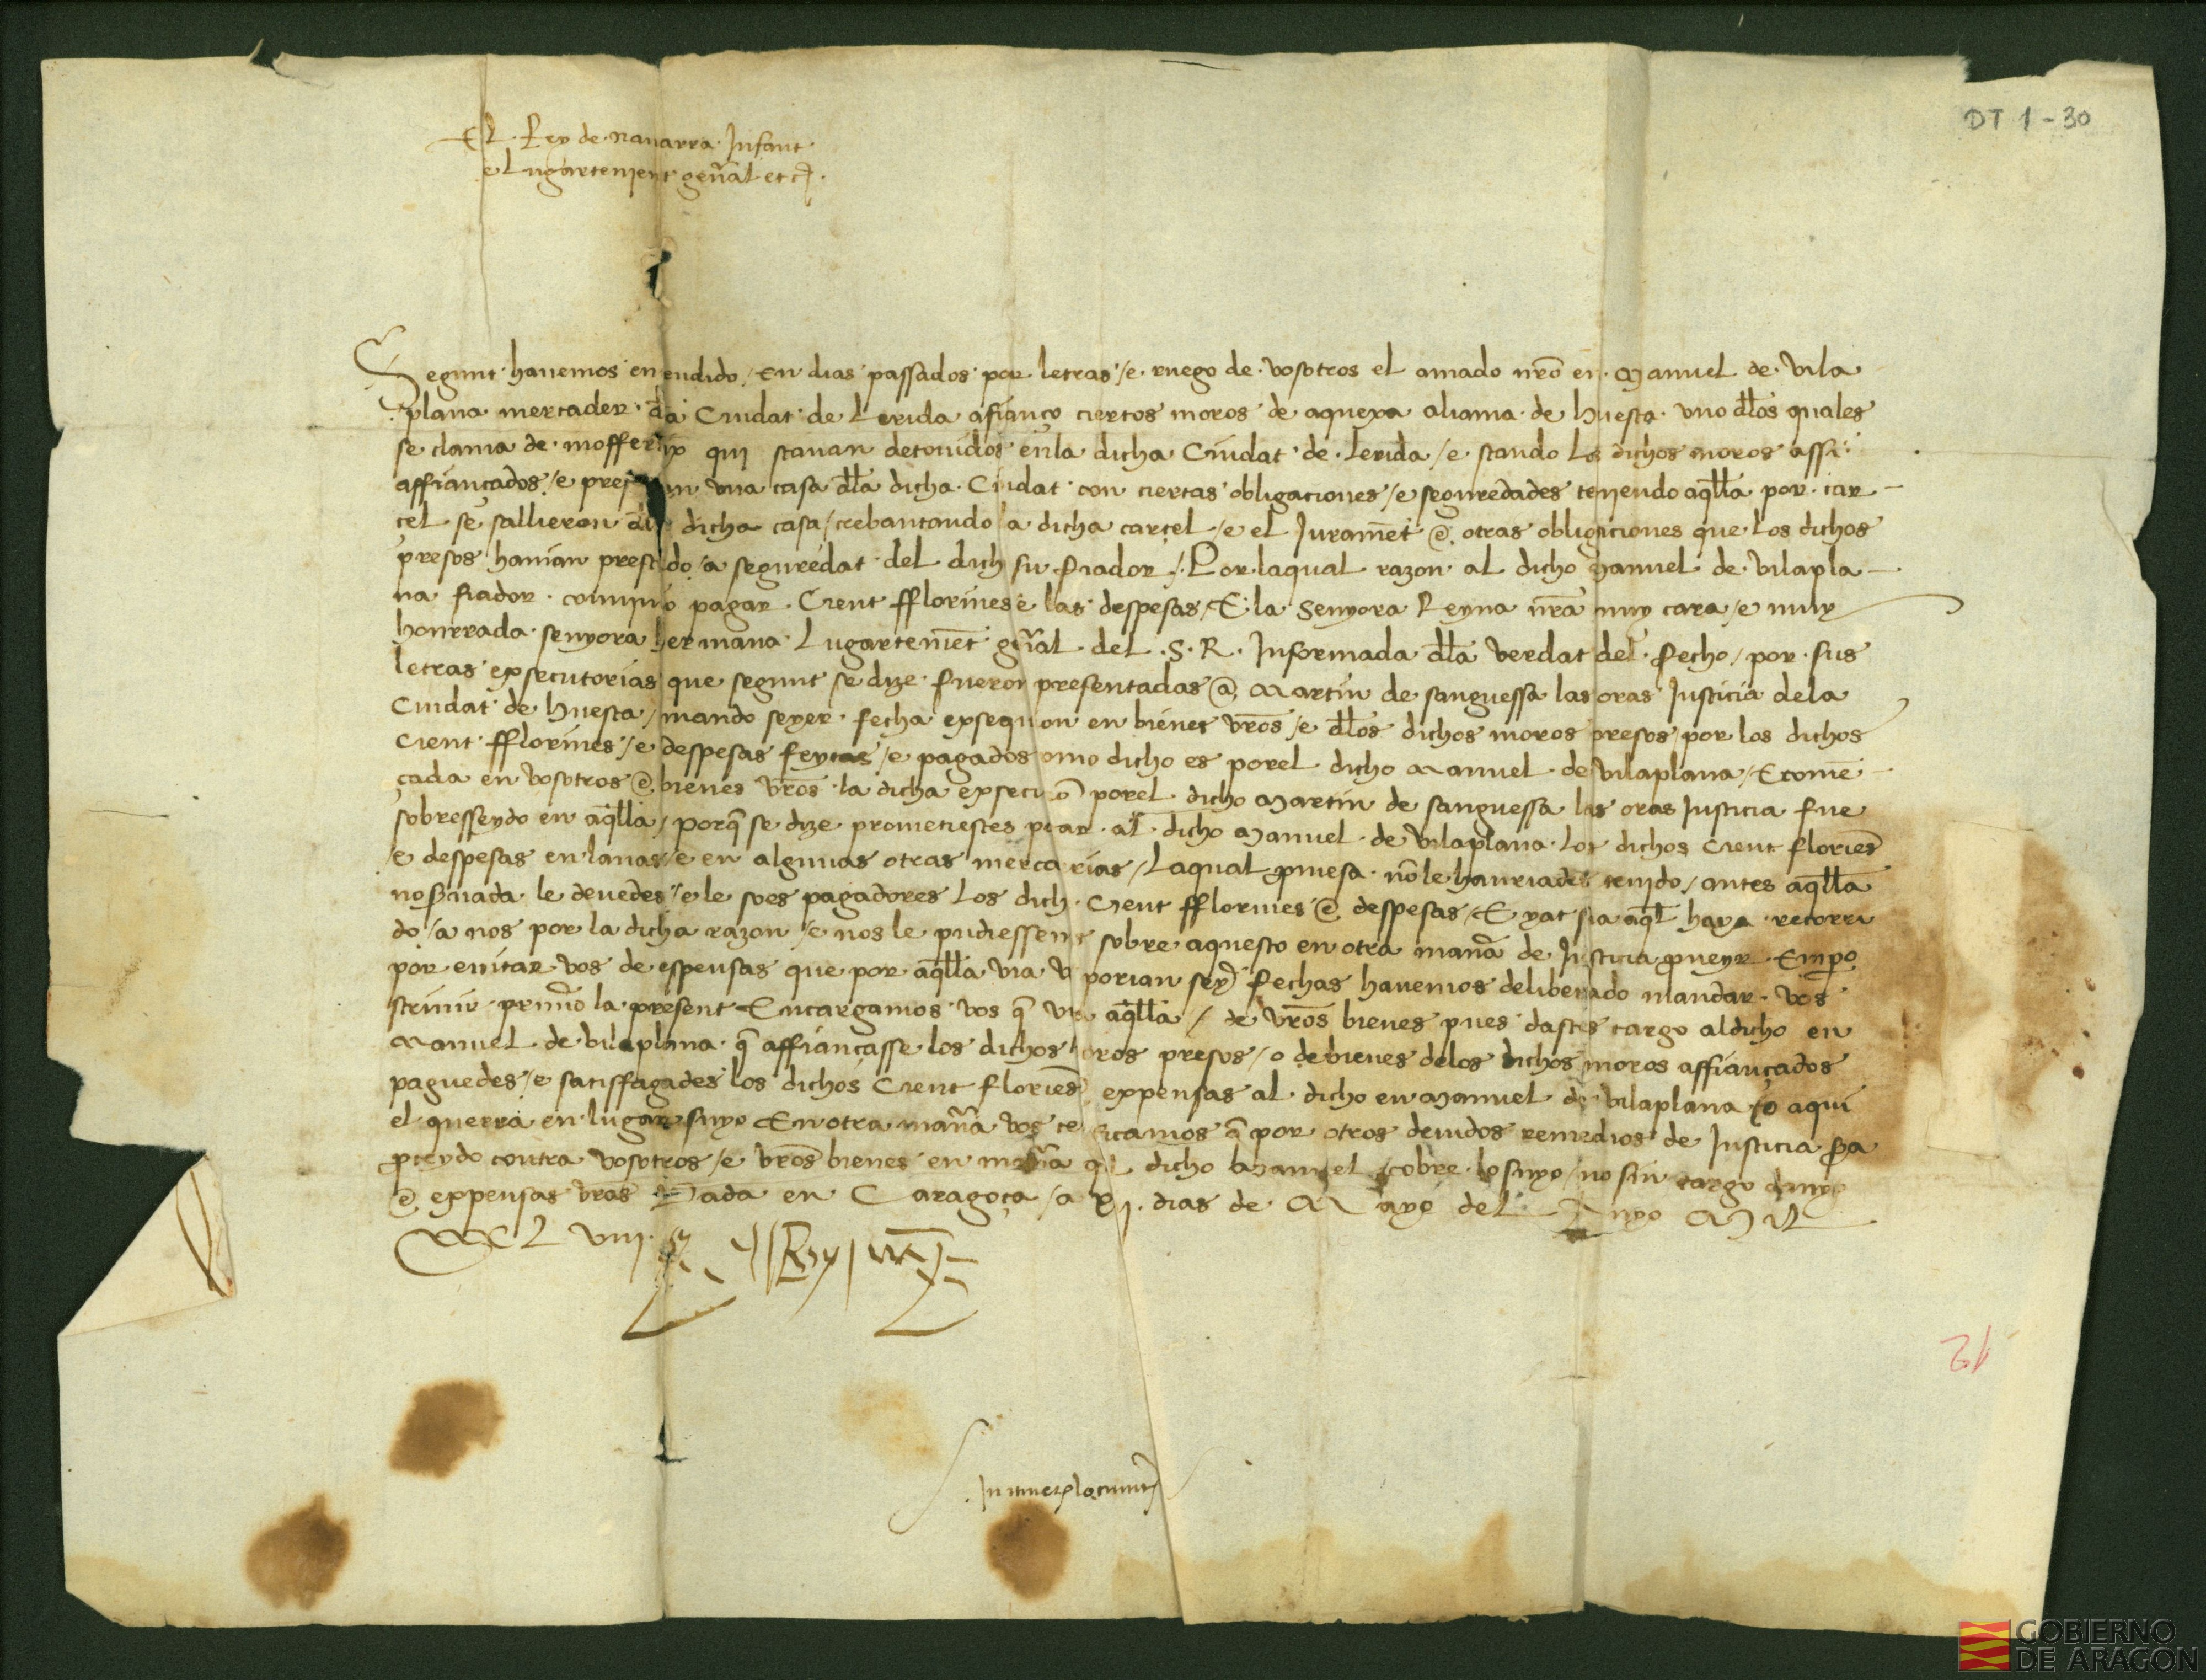 DT 1-30
El Rey de navarra Infant
e Lugartenient gen̄al etc̄.
Segunt havemos entendido / En dias passados por letras / e ruego de vosotros el amado nr̄o en Manuel de Vila
plana mercader dla Ciudat de Lerida afianço ciertos moros de aquexa aliama de huesca uno dl̄os quales
se clama de qui stavan detovidos enla dicha Ciudat de Lerida / e stando los dichos moros assi
affiançados / e presos en una casa dl̄a dicha Ciudat con ciertas obligaciones / e seguredades teniendo aq̄lla por car
cel se sallieron dla dicha casa / crebantando la dicha carcel / e el Juramēt e otras obligaciones que los dichos
presos havian prestado / a seguredat del dich su fiador / Por laqual razon al dicho Manuel de vilapla
na fiador convino pagar Cient fflorines e las despesas / E la Senyora Reyna nr̄a muy cara / e muy
honrrada senyora hermana Lugartenīet gn̄al del S. R. Informada dl̄a verdat del fecho / por sus
letras exsecutorias que segunt se dize fueron presentadas a Martin de sanguessa lasoras Justicia dela
Ciudat de huesca / mando seyer fecha exsequcion en bienes vr̄os / e dl̄os dichos moros presos por los dichos
Cient fflorines / e despesas feytas / e pagados como dicho es porel dicho Manuel de vilaplana / E comē
çada en vosotros e bienes vr̄os la dicha exsecucio porel dicho Martin de sanguessa lasoras Justicia fue
sobresseydo en aq̄lla / porq̄ se dize prometiestes pagar al dicho Manuel de vilaplana los dichos Cient floriēs
e despesas en lanas / e en algunas otras mercaderias / Laqual promesa nōle hauriades tenido / antes aq̄lla
le devedes / e le soes pagadores los dich Cient fflorines e despesas / E yat sia aq̄l haya recorri
do / a nos por la dicha razon / e nos le pudiessemos sobre aquesto en otra manā de Justicia proveyr Emp̄o
por evitar vos de espensas que por aq̄lla via vos porian seyer fechas havemos deliberado mandar vos
scrivir prim̄o la present Encargamos vos q̄ vista aq̄lla / de vr̄os bienes pues dastes cargo aldicho en
Manuel de vilaplana q̄ affiançasse los dichos moros presos / o de bienes delos dichos moros affiançados
paguedes / e satisffagades los dichos Cient floriēs e expensas al dicho en Manuel de vilaplana / o aqui
el querra en lugar suyo En otra manā vos certificamos q̄ por otros devidos remedios de Justicia sera
proceydo contra vosotros / e vr̄os bienes en manā q̄l dicho Manuel cobre lo suyo / no sin cargo
e expensas vr̄as Dada en Caragoça / a XI dias de Mayo del Anyo Mil
CCCCL viiii
21
GOBIERNO
DE ARAGON